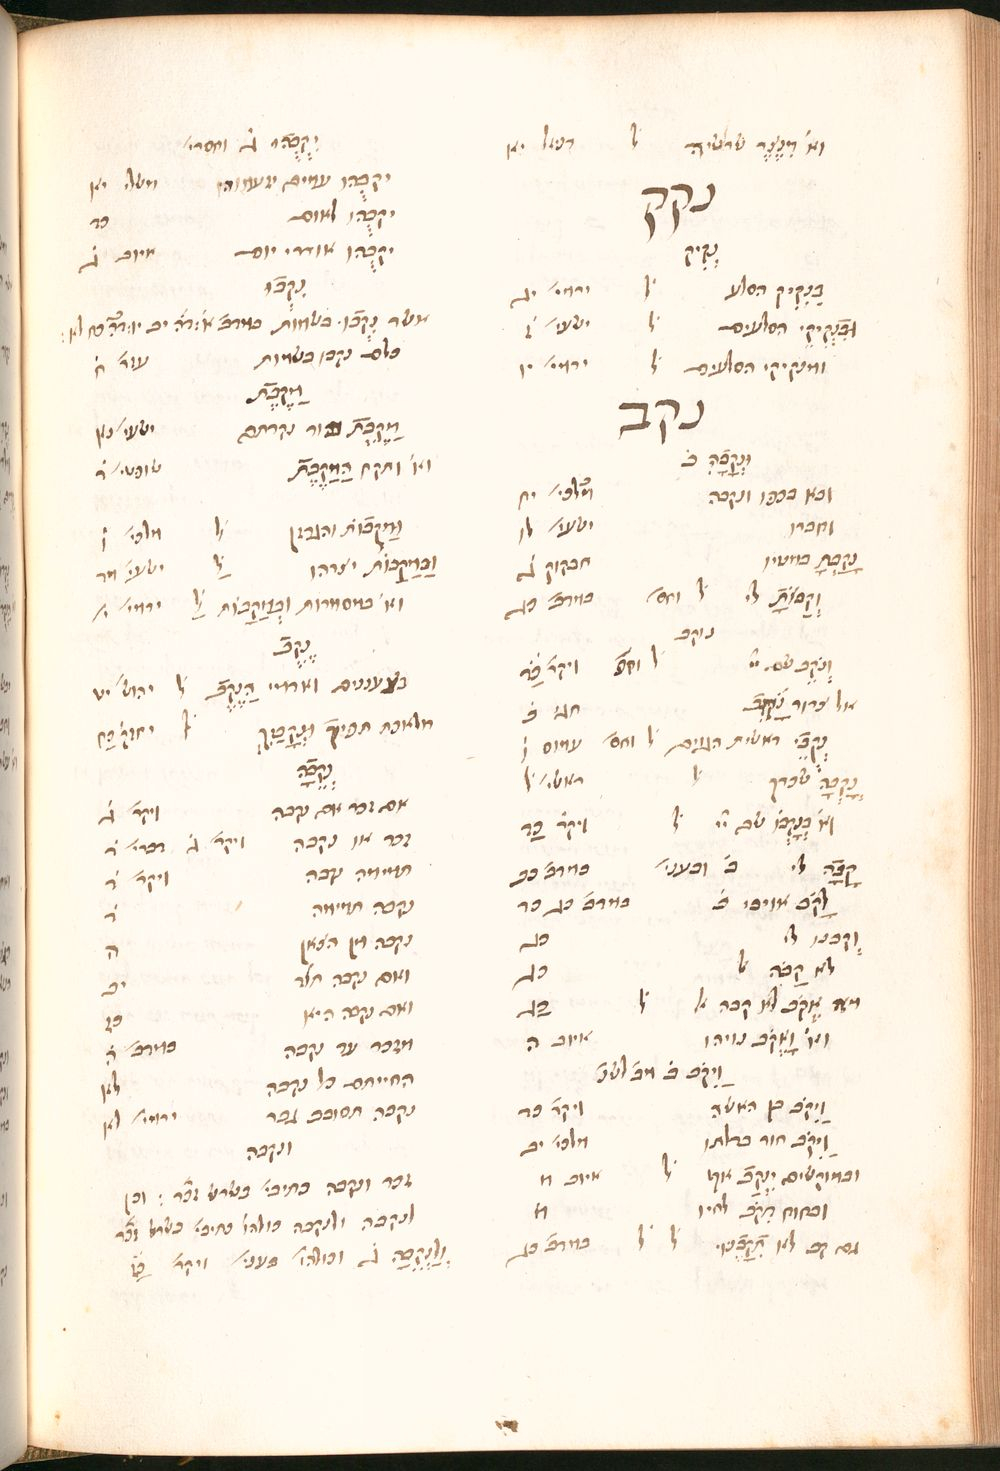 וא׳ מִנֵצֶר שרשיה ל׳ דניאל יא
נקק
נְקִיק
בִּנְקִיק הסלע ל׳ ירמי׳ יג
וּבִנְקִיקֵי הסלעים ל׳ ישעי׳ ז
ומנקיקי הסלעים ל׳ ירמי׳ יו
נקב
וּנְקָבָהּ ב׳
ובא בכפו ונקבה מלכי׳ יח
וחברו ישעי׳ לו
נָקַבְתָּ במטיו חבקוק ג
וְקַבֹּתוֹ לי ל׳ וחס׳ במדבר כג
נוקב
וְנֹקֵב שם יי׳ ל׳ ויקר׳ כד
אל צרור נָקוּב חגי ב׳
נְקֻבֵי ראשית הגוים ל׳ וחס׳ עמוס ו
נָקְבָה שכרך ל׳ ראשי׳ ל
וא׳ בְּנָקְבוֹ שם יי׳ ל׳ ויקר׳ כד
קָבָה לי ב׳ ובעני׳ במדבר כב
לָקֹב אויבי ב׳ במדבר כג כד
וקבנו לי כג
לא קַבֹּה ל׳ כג
מה אֶקֹּב לא קבה אל ל׳ כג
וא׳ וָאֶקּוֹב נויהו איוב ה
וַיִּקֹּב ב׳ מב׳ לשנ׳
וַיִּקֹּב בן האשה ויקר׳ כד
וַיִּקֹּב חור בדלתו מלכי׳ יב
ובמוקשים יִנְקָב אף ל׳ איוב מ
ובחוח תִּקֹּב לחיו מ
גם קב לא תִקֳּבֶנּוּ ל׳ ל׳ במדבר כג
יִקְּבֻהוּ ג׳ וחסרי׳
יקבהו עמים יזעמוהו משלי יא
יקבהו לאום כד
יקבהו אוררי יום איוב ג
נִקְּבוּ
אשר נִקְּבוּ בשמות במדבר א
כלם נקבו בשמות עזר׳ ח
מַקֶּבֶת
מַקֶּבֶת בור נקרתם ישעי׳ נא
וא׳ ותקח הַמַּקֶּבֶת שופטי׳ ד
וּמַקָּבוֹת והגרזן ל׳ מלכי׳ ו
וּבַמַּקָּבוֹת יצרהו ל׳ ישעי׳ מד
וא׳ במסמרות וּבְמַקָּבוֹת ל׳ ירמי׳ י
נֶקֶב
בצעננים ואדמי הַנֶּקֶב ל׳ יהוש׳ יט
מלאכת תפיך וּנְקָבֶיךָ ל׳ יחזק׳ כח
נְקֵבָה
אם זכר אם נקבה ויקר׳ ג
זכר או נקבה ויקר׳ ג דברי׳ ד
תמימה נקבה ויקר׳ ד
נקבה תמימה ד
נקבה מן הצאן ה
ואם נקבה תלד יב
ואם נקבה היא כז
מזכר עד נקבה במדבר ה
החייתם כל נקבה לא
נקבה תסובב גבר ירמי׳ לא
ונקבה
זכר ונקבה כתיבי׳ בשרש זכר : וכן
לנקבה ולנקבה כולהו׳ כתיבי׳ בשרש זכר
וְלַנְּקֵבָה ג׳ וכולהו׳ בעני׳ ויקר׳ כז